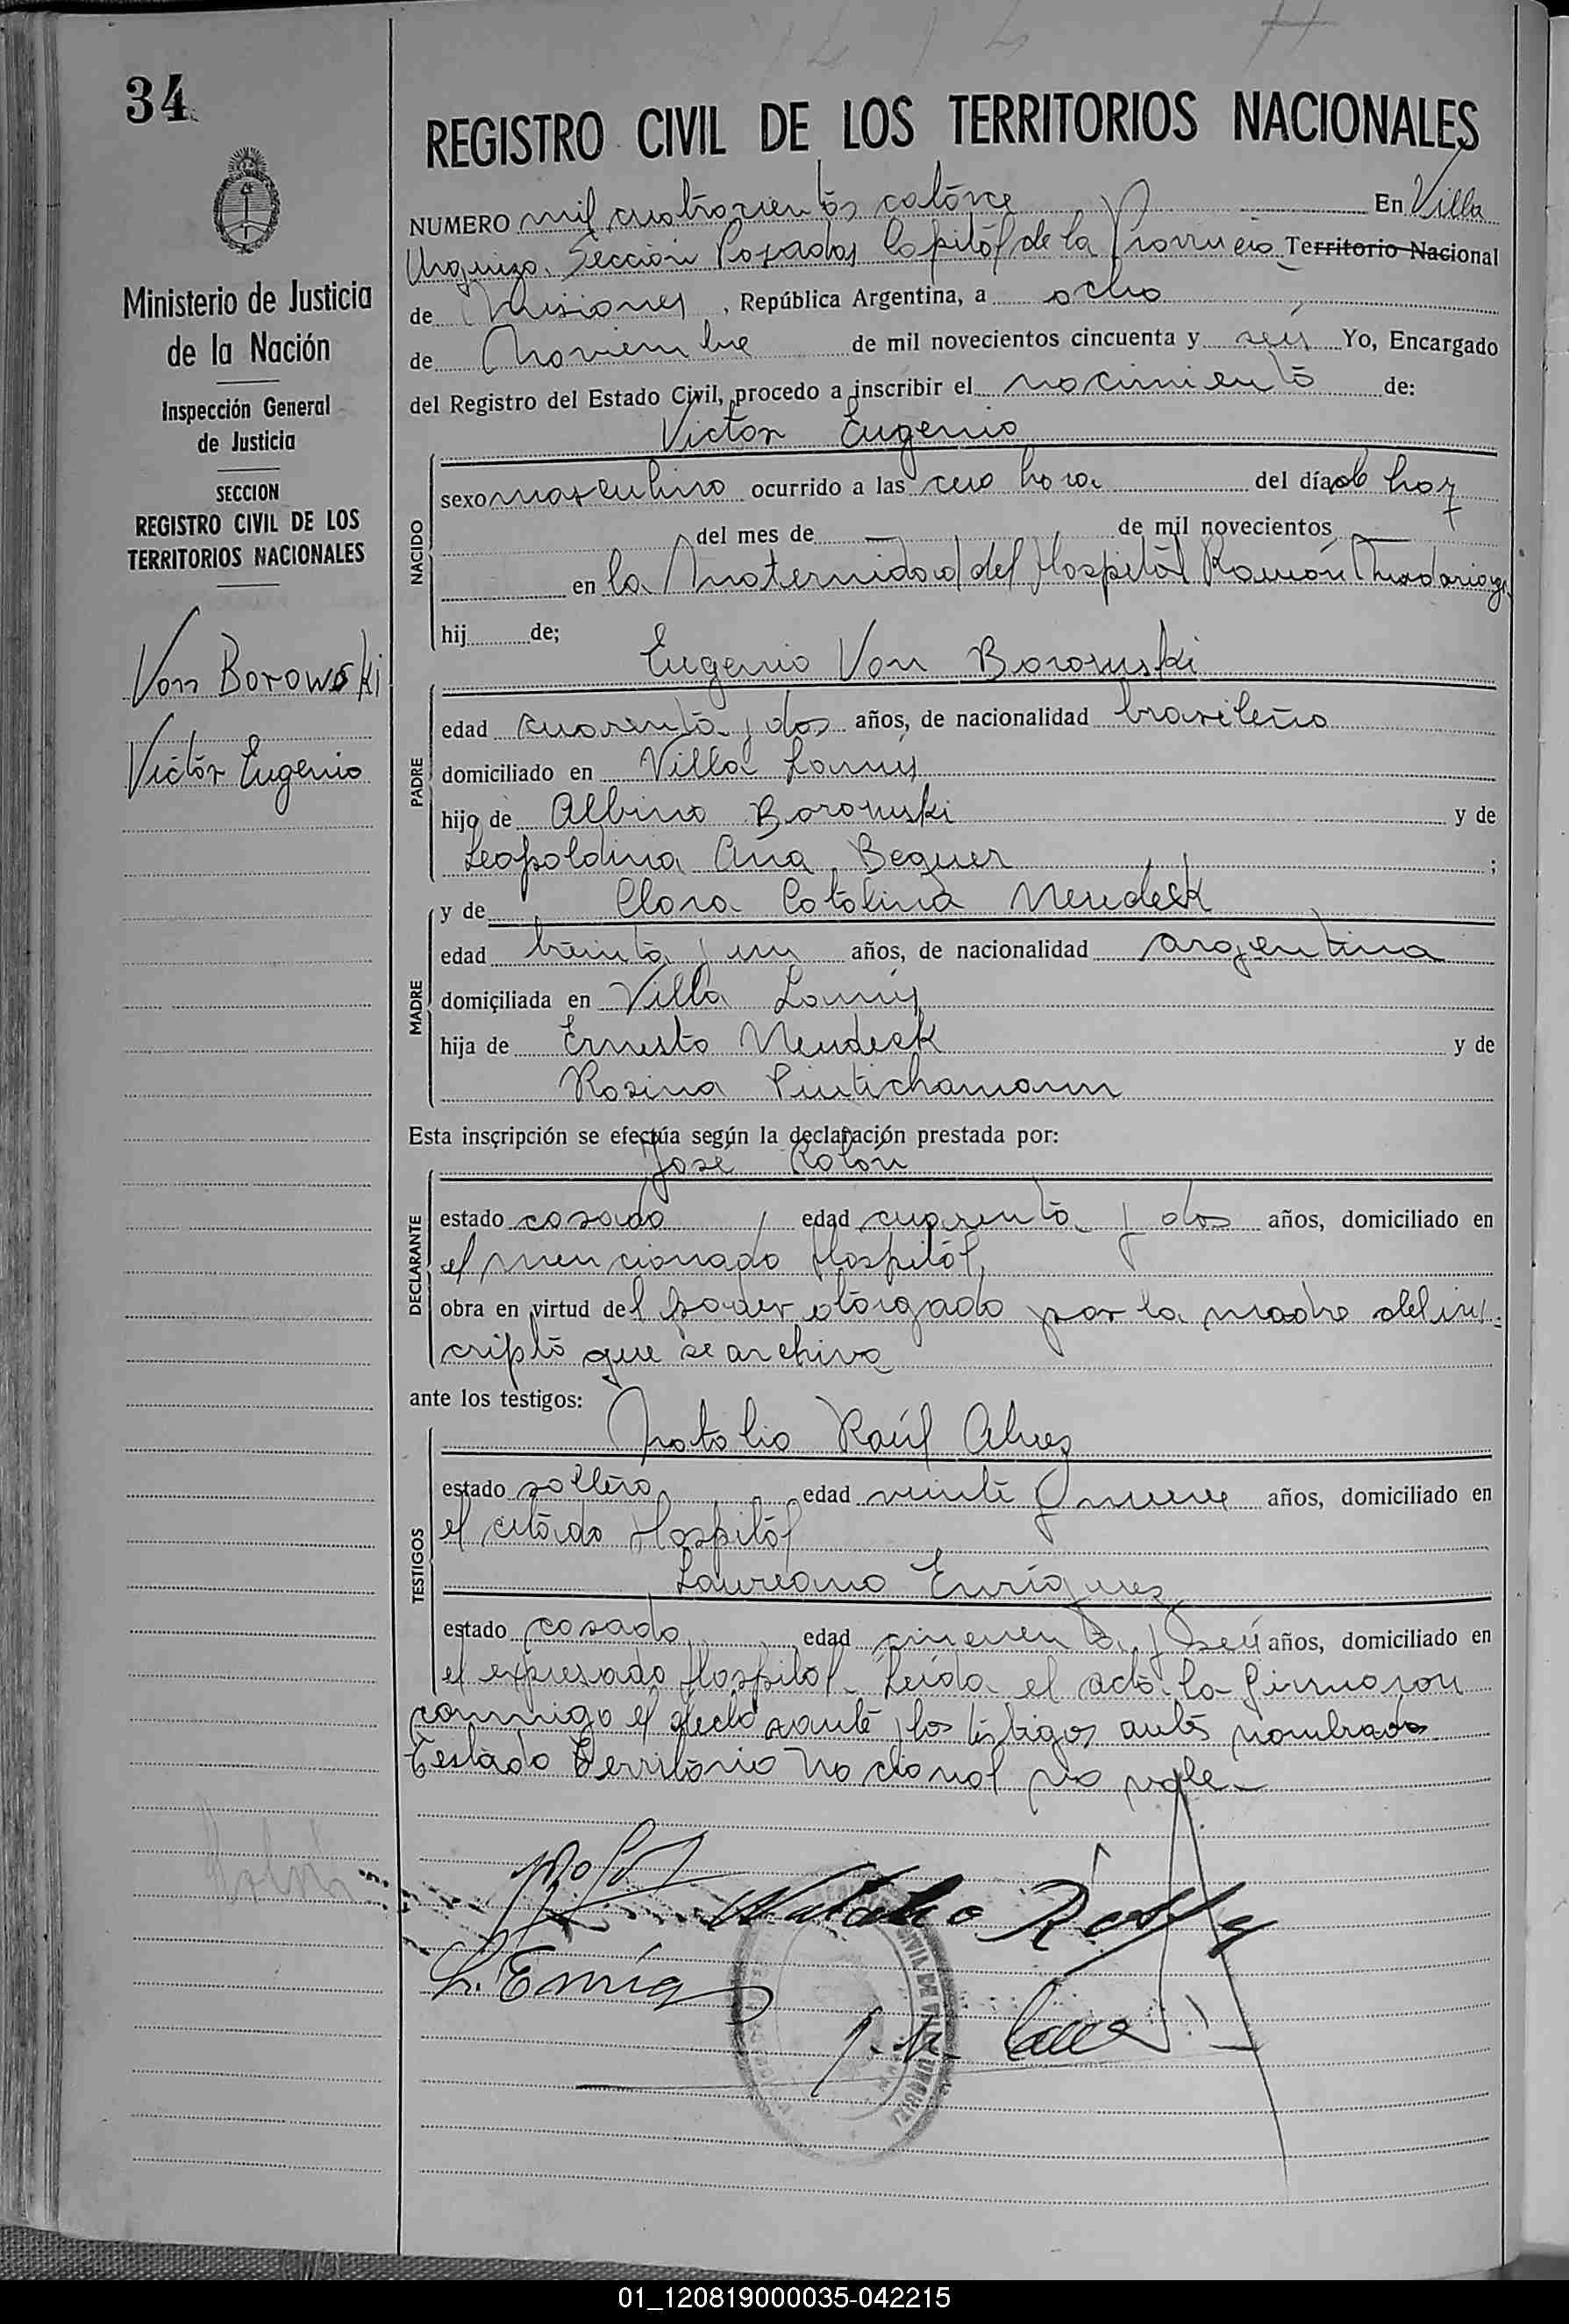 34
REGISTRO CIVIL DE LOS TERRITORIOS NACIONALES
Ministerio de Justicia
de la Nación
Inspección General
de Justicia
SECCION
REGISTRO CIVIL DE LOS
TERRITORIOS NACIONALES
Von Borowski
Victor Eugenio
NUMERO mil cuatrocientos catorce En Villa
Urquiza, Sección Posadas Capital de la Provincia Territorio Nacional
de Misiones, República Argentina, a ocho
de Noviembre de mil novecientos cincuenta y seis Yo, Encargado
del Registro del Estado Civil, procedo a inscribir el nacimiento de:
Victor Eugenio
NACIDO
sexo masculino ocurrido a las cero hora del día de hoy
del mes de — de mil novecientos —
en la Maternidad del Hospital Ramón Madariaga
hij de;
Eugenio Von Borowski
PADRE
edad cuarenta y dos años, de nacionalidad brasileño
domiciliado en Villa Lanus
hijo de Albino Borowski y de
Leopoldina Ana Bequer ;
MADRE
y de Clara Catalina Neudeck
edad treinta y un años, de nacionalidad argentina
domiciliada en Villa Lanus
hija de Ernesto Neudeck y de
Rosina
Esta inscripción se efectúa según la declaración prestada por:
José Rolón
DECLARANTE
estado casado, edad cuarenta y dos años, domiciliado en
el mencionado Hospital,
obra en virtud del poder otorgado por la madre del ins-
cripto que se archiva
ante los testigos:
Natalio Raúl Alvez
TESTIGOS
estado soltero, edad veinte y nueve años, domiciliado en
el citado Hospital
Laureano Enriquez
estado casado, edad cincuenta y seis años, domiciliado en
el expresado Hospital. Leída el acta la firmaron
conmigo el declarante y los testigos antes nombrados
Testado Territorio Nacional no vale.
L. Enriq
01_120819000035-042215